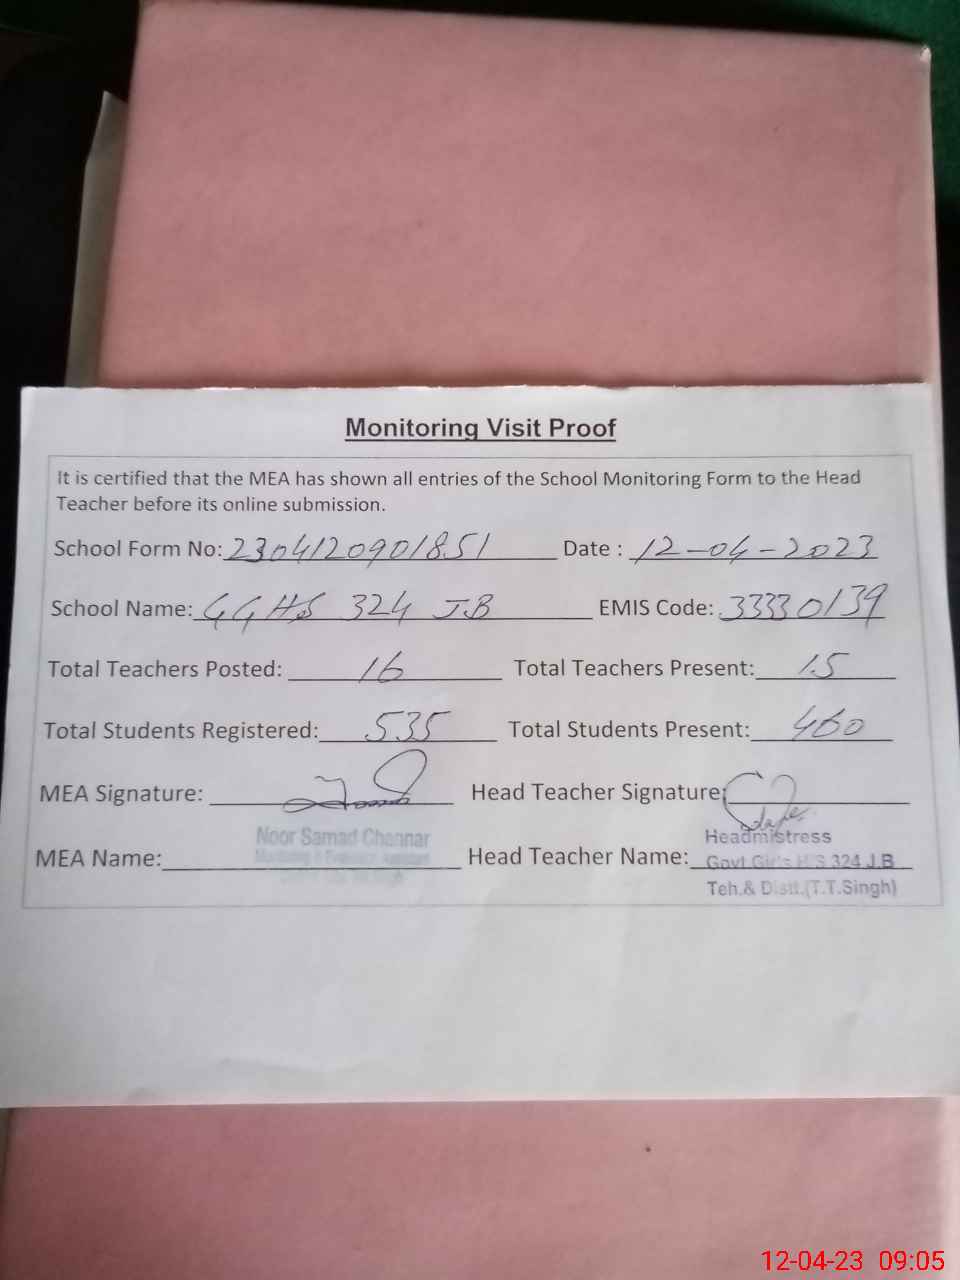 Monitoring Visit Proof
It is certified that the MEA has shown all entries of the School Monitoring Form to the Head
Teacher before its online submission.
School Form No: 2304120901851 Date : 12-04-2023
School Name: GGHS 324 JB EMIS Code: 33330139
Total Teachers Posted: 16 Total Teachers Present: 15
Total Students Registered: 535 Total Students Present: 460
MEA Signature: Head Teacher Signature:
Noor Samad Channar Headmistress
MEA Name: Head Teacher Name: Govt Girls H/S 324 J.B
Teh.& Distt.(T.T.Singh)
12-04-23 09:05